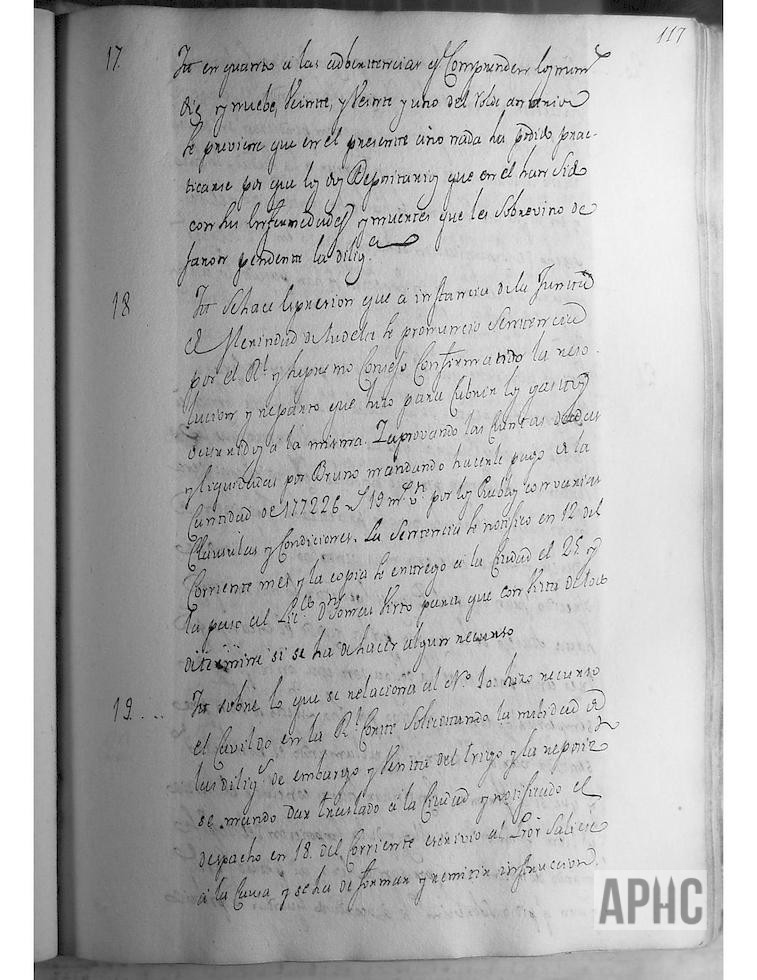 117
17. Itt en quanto a las adbertencias q Comprenden los num.
diez y nuebe, Veinte, y Veinte y uno del Rolde anterior
se previene que en el presente año nada ha podido prac-
ticarse por que los dos Depositarios que en el han sido
con las Enfermedades y muertes que les sobrevino de
jaron pendente la dilig.a
18 Itt Se hace expresion que a instancia de la Junta
de Merindad de Tudela se pronuncio Sentencia
por el R.l y Supremo Consejo Confirmando la reso-
lucion y reparto que hizo para Cubrir los gastos
ocurridos a la misma. Y aprovando las Cuentas dadas
y liquidadas por Bruno mandando hacerle pago de la
Cantidad de 177226 19 por los Pueblos con varias
Clausulas y Condiciones. La Sentencia se notifico en 12 del
Corriente mes y la copia se entrego a la Ciudad el 25 y
la paso al Lic.do D.n Tomas para que con Vista de todo
determine si se ha de hacer algun recurso
19... Itt sobre lo que se relaciona al N.o 10. hizo recurso
el Cavildo en la R.l Corte Solicitando la nulidad de
las dilig.s de embargo y Venta del trigo y la reposiz.n
se mando dar traslado a la Ciudad y notificado el
despacho en 18. del Corriente escrivio al Pror Saliese
a la Causa y se ha de formar y remitir instruccion.
APHC